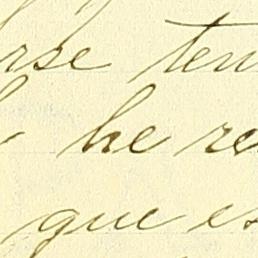 rse ten
he re
que es